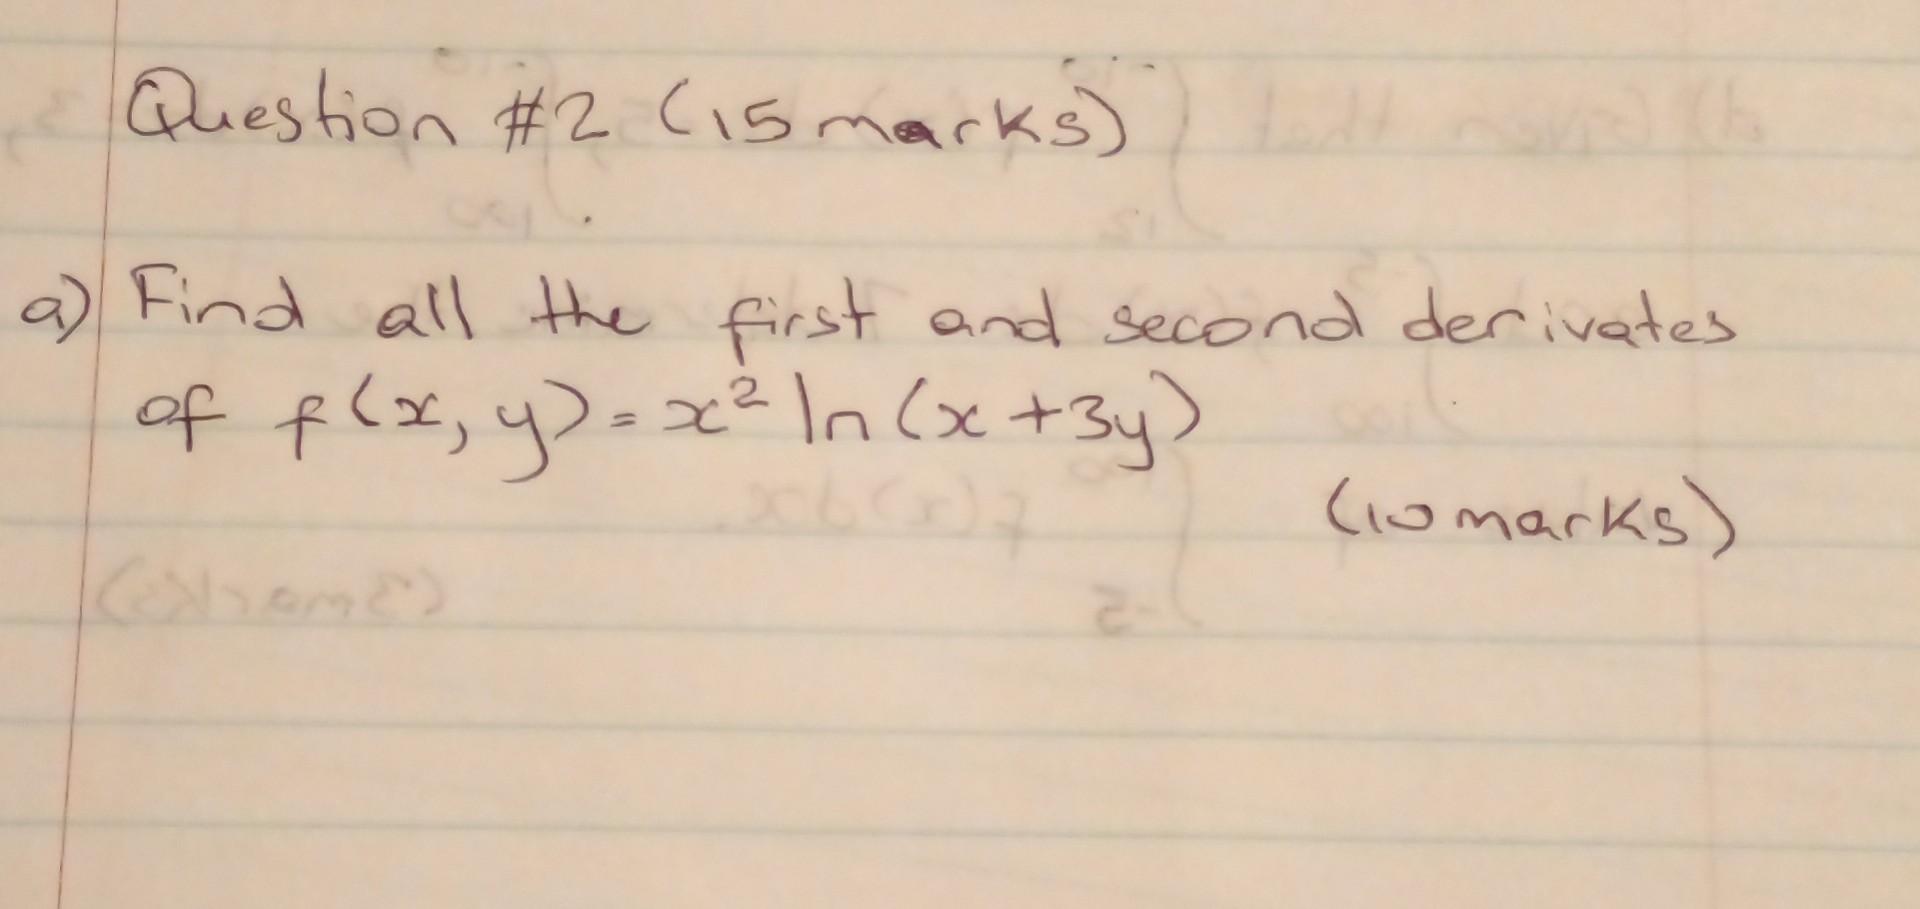 Question #2 (15 marks)
a) Find all the first and second derivates
of f(x, y) = x² ln (x + 3y)
(10 marks)